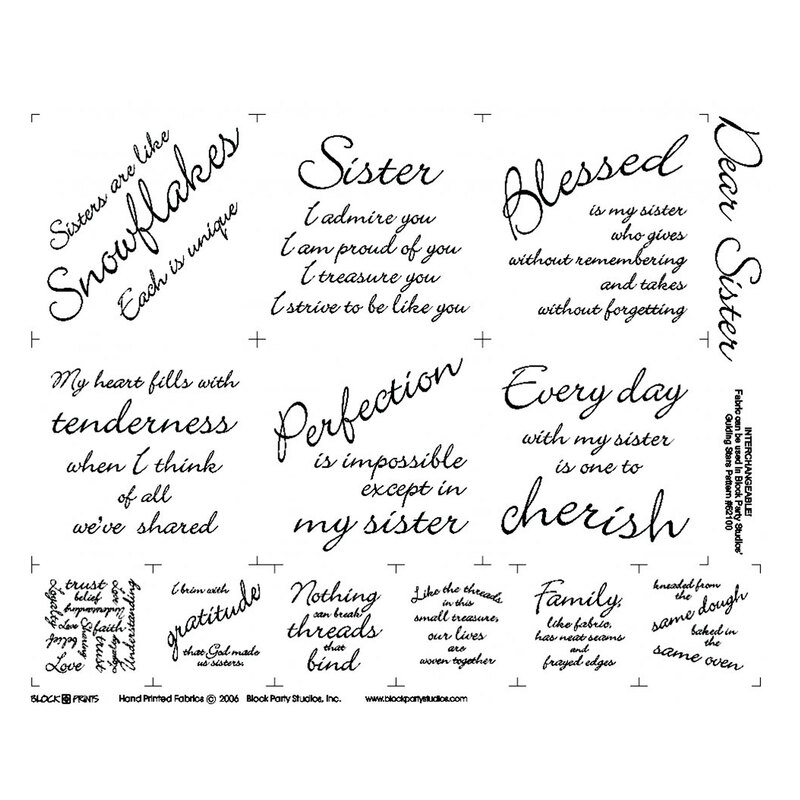 Sisters are like
Snowflakes
Each is unique
Sister
I admire you
I am proud of you
I treasure you
I strive to be like you
Blessed
is my sister
who gives
without remembering
and takes
without forgetting
Dear Sister
My heart fills with
tenderness
when I think
of all
we've shared
Perfection
is impossible
except in
my sister
Every day
with my sister
is one to
cherish
INTERCHANGEABLE!
Fabric can be used in Block Party Studios'
Guiding Stars Pattern #62100
trust
belief
Understanding
Loyalty
Love
faith
Sharing
belief
trust
Love
Understanding
I brim with
gratitude
that God made
us sisters.
Nothing
can break
threads
that
bind
Like the threads
in this
small treasure,
our lives
are
woven together
Family,
like fabric,
has neat seams
and
frayed edges
kneaded from
the
same dough
baked in
the
same oven
BLOCK PRINTS Hand Printed Fabrics © 2006 Block Party Studios, Inc. www.blockpartystudios.com